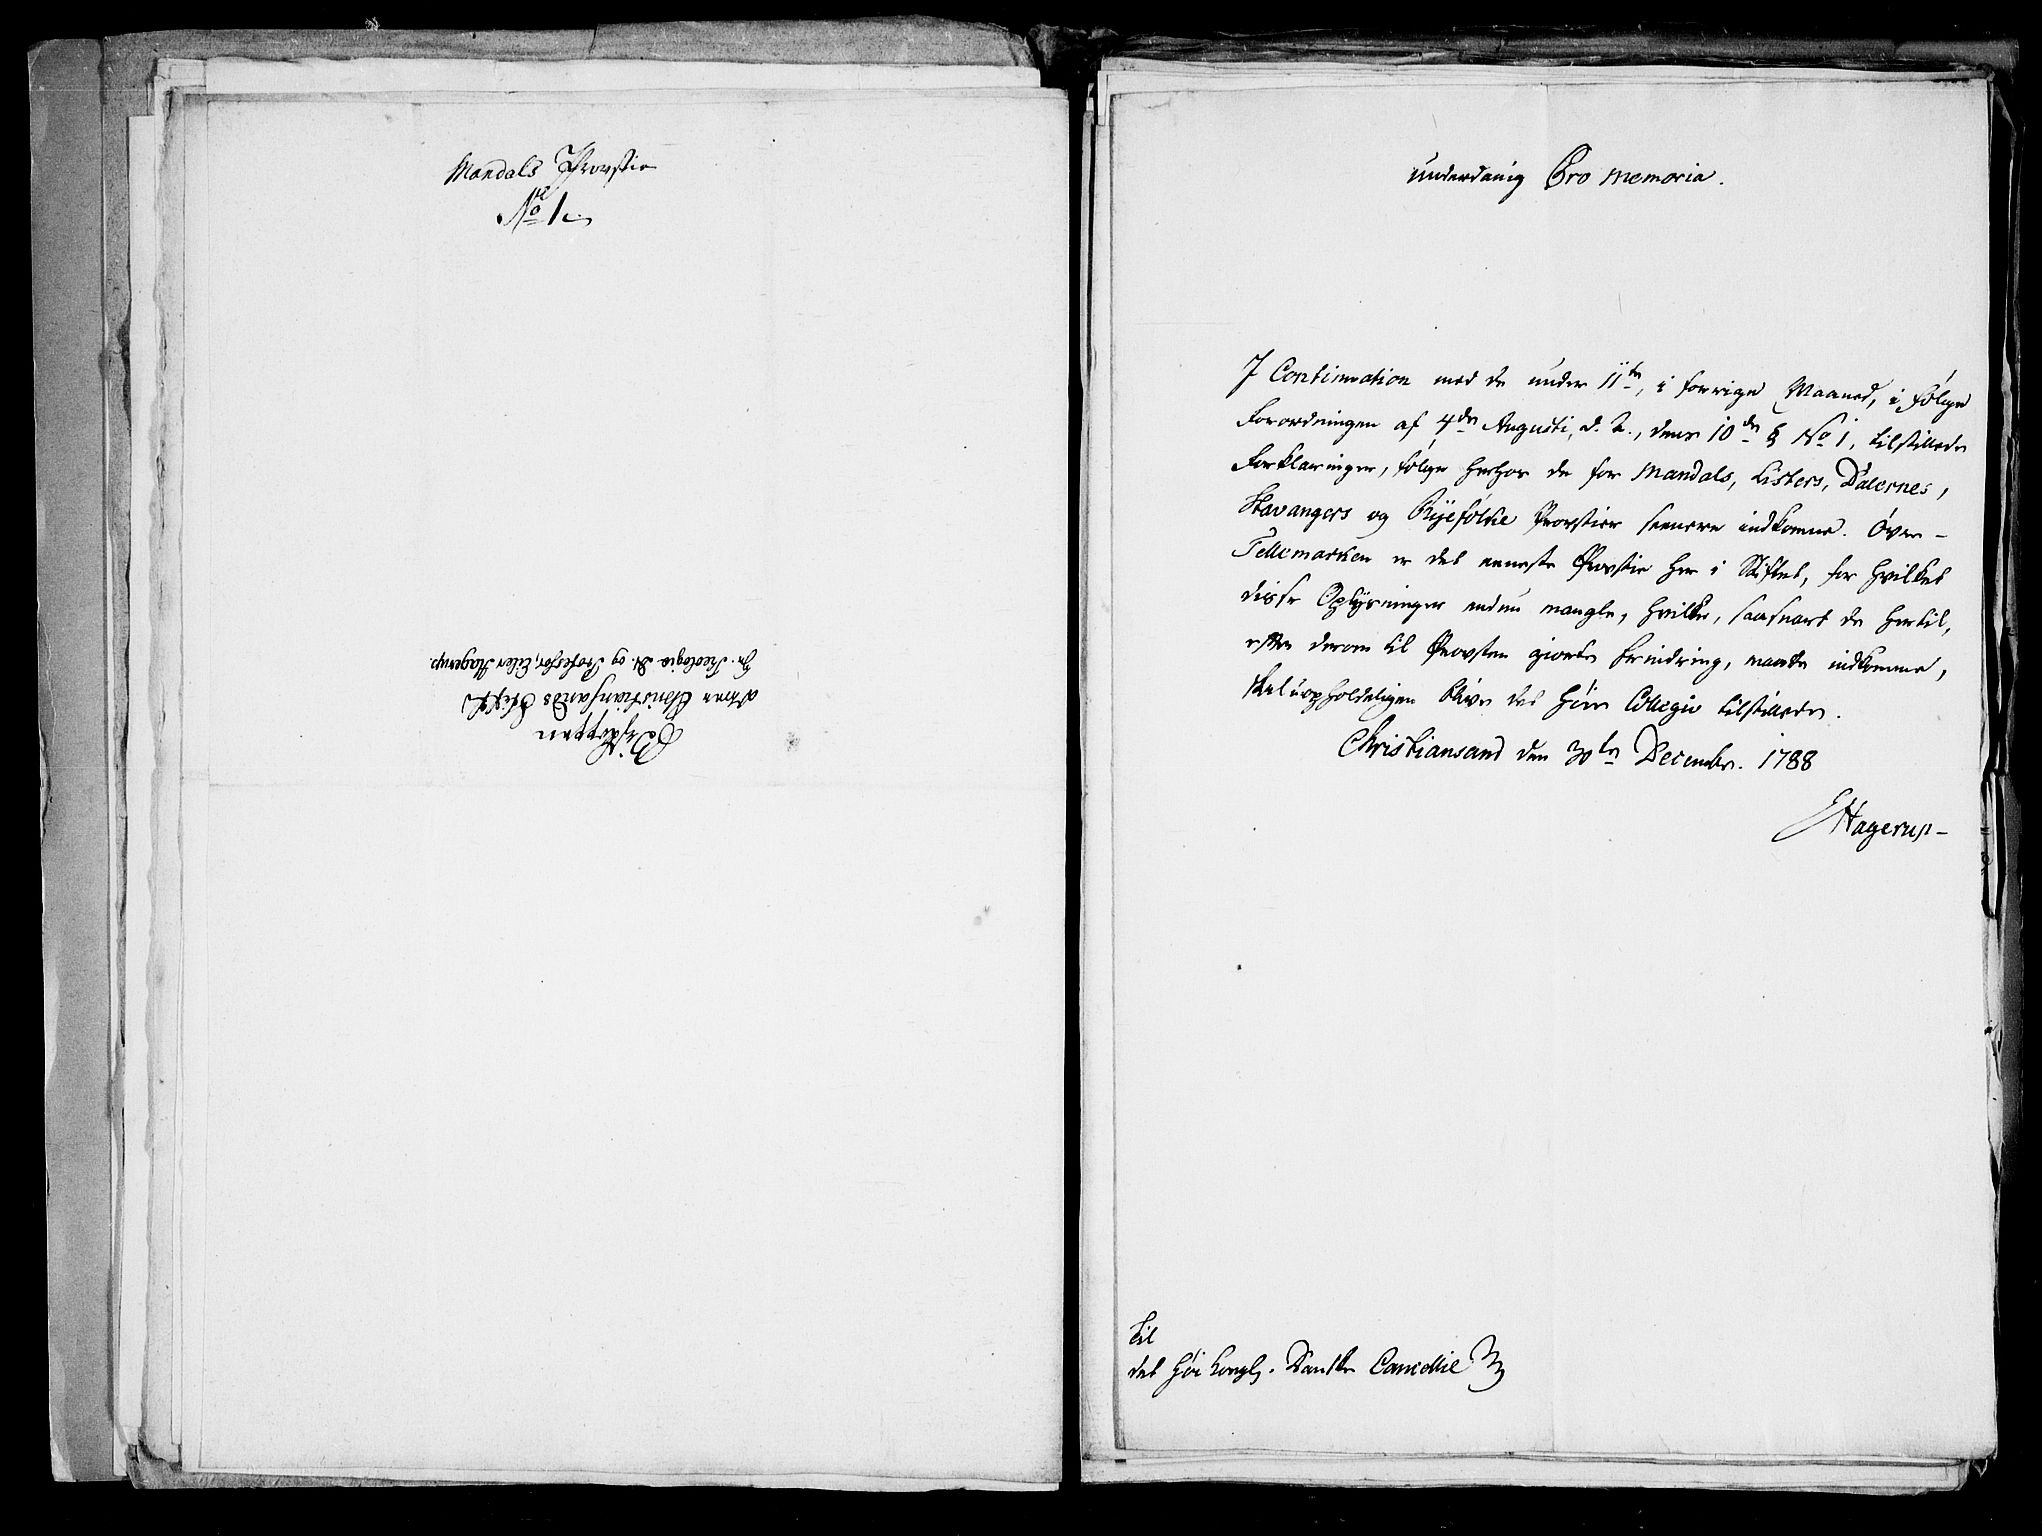 Mandals Provstie
No 1.
Biskoppen
over Christiansands Stift
Hr. Teologiæ D. og Professor, Eiler Hagerup.
underdanig Pro memoria.
I Continuation med de under 11te, i forrige Maaned, i følge
Forordningen af 4de Augusti, d. A., dens 10de § No 1, tilstillede
Forklaringer, følger herhos de for Mandals, Listers, Dalernes,
Stavangers og Ryefølke Provstier senere indkomne. Över-
Tellemarken er det eneste Provstie her i Stiftet, for hvilket
disse Oplysninger endnu mangle, hvilke, saasnart de hertil,
efter derom til Provsten giorte Erindring, maatte indkomme,
skal uopholdeligen blive det Høie Collegio tilstillede.
Christiansand den 30te Decembr. 1788
EHagerup-
Til
det høi Kongl. Danske Cancellie